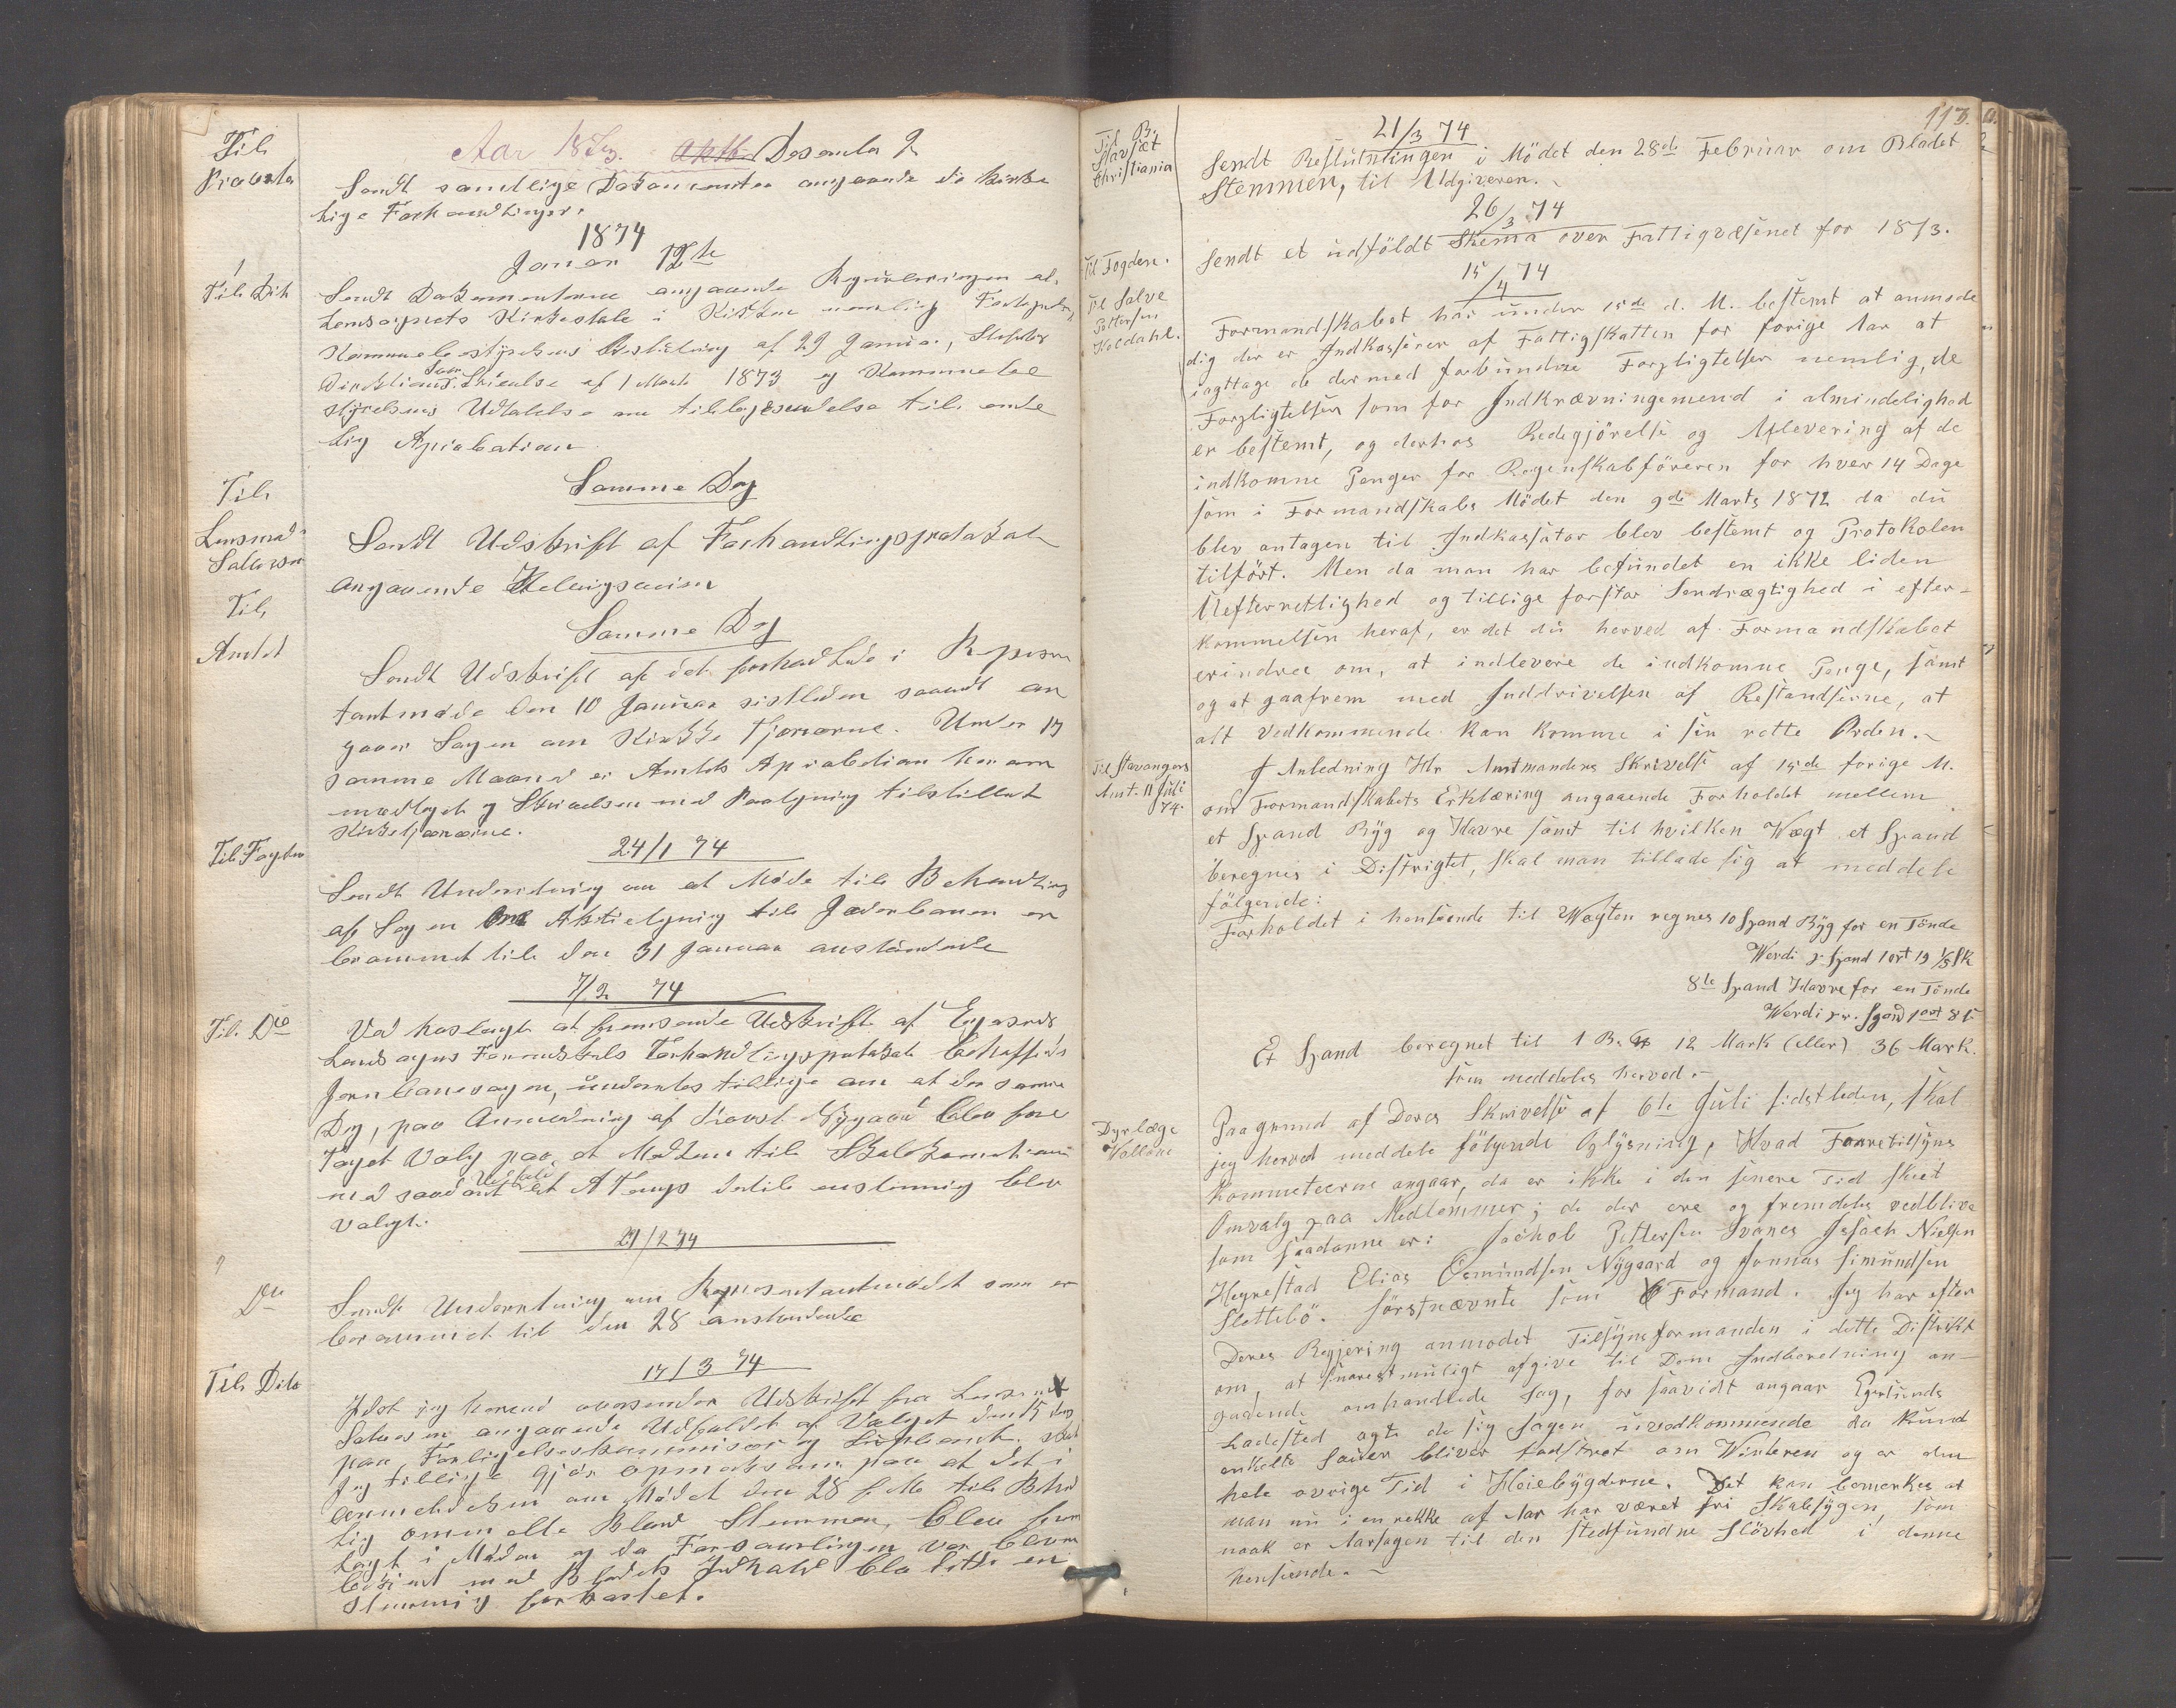 Til
Provsten
Aar 1873. Desember 2
Sendt samtlige Dokumenter angaaende de kirke
lige Forhandlinger.
1874
Januar 12te
Til Dito
Sendt Dokumenterne angaaende Reguleringen af
Kirkestole i Kirken nemlig
Kommunebestyrelsens Beslutning af 29 Januar, Stifts
Direktionens Skrivelse af 1 Marts 1873 og Kommunebe
styrelsens Udtalelse om til ende
lig Aprobation
Samme Dag
Til
Lensmand
Salvesen
Sendt Udskrift af Forhandlingsprotokol
angaaende
Til
Amtet
Samme Dag
Sendt Udskrift af det forhandlede i Represen
tantmøde den 10 Januar sistleden saavidt an
gaaer Sagen om Kirke Tjenerne. Under 17
samme Maaned er Amtets Aprobation herom
modtaget og Skrivelsen med Paategning tilstillet
Kirketjenerne.
Til Fogden
24/1 74
Sendt Underretning om et Møde til Behandling
af Sagen om Aktietegning til Jæderbanen er
berammet til den 31 Januar anstundende
7/2 74
Til Do
Ved hoslagt at fremsende Udskrift af Egersunds
Landsogns Formandskabs Forhandlingsprotokol betræffende
Jernbanesagen, underrettes tillige om at den samme
Dag, paa Anmodning af Provst Nygaard blev fore
taget Valg paa et Medlem til Skolekommitionen
ved saadant Valg
valgt.
21/2 74
Do
Sendt Underretning om Representantmødet som er
berammet til den 28 anstundende
17/3 74
Til Dito
Idet jeg herved oversender Udskrift fra Lensmand
Salvesen angaaende Udfaldet af Valget den 15 ds
paa Forligelseskommissær og skal
jeg tillige gjøre opmærksom paa at det i
anmeldelsen om Mødet den 28 f. M. til Behand
ling ommeldte Blad Stemmen, blev frem
lagt i Mødet og da Forsamlingen var
bekjent med Bladets Indhold blev dette en
stemmig forkastet.
113.
Til B.
Slavsæt
Christiania
21/3 74
Sendt Beslutningen i Mødet den 28de Februar om Bladet
Stemmen, til Udgiveren.
26/3 74
Til Fogden.
Sendt et udföldt Skema over Fattigvæsenet for 1873.
15/4 74
Til Salve
Pettersen
Koldahl.
Formandskabet har under 15de d. M. bestemt at anmode
dig der er Indkasserer af Fattigskatten for forige Aar at
iagttage de dermed forbundne Forpligtelser nemlig, de
Forpligtelser som for Indkrævningsmend i almindelighed
er bestemt, og derhos Redegjörelse og Aflevering af de
indkomne Penger for Regenskabföreren for hver 14 Dage
som i Formandskabs Mödet den 9de Marts 1872 da du
blev antagen til Indkassator blev bestemt og Protokolen
tilfört. Men da man har befundet en ikke liden
Uefterretlighed og tillige forstor Sendrægtighed i efter-
kommelsen heraf, er det du herved af Formandskabet
erindres om, at indlevere de indkomne Penge, samt
og at gaafrem med Inddrivelsen af Restandserne, at
alt vedkommende kan komme i sin rette Orden.
Til Stavangers
Amt. 11 Juli
74.
I Anledning Hr Amtmandens Skrivelse af 15de forige M.
om Formandskabets Erklæring angaaende Forholdet mellem
et Spand Byg og Havre samt til hvilken Vægt et Spand
beregnes i Distrigtet, skal man tillade sig at meddele
fölgende:
Forholdet i henseende til Wægten regnes 10 Spand Byg for en Tönde
Werdi pr Spand 1 ort 19 1/5 sk
8te Spand Havre for en Tönde
Werdi pr. Spand 1 ort 8 s
Et Spand beregnet til 1 B. 12 Mark (eller) 36 Mark.
som meddeles herved.
Dyrlæge
Vollane
Paa grund af Deres Skrivelse af 6te Juli sidstleden, skal
jeg herved meddele fölgende Oplysning, Hvad Faaretilsyns
Kommeteerne angaar, da er ikke i den senere Tid skeet
Omvalg paa Medlemmer; de der ere og fremdeles vedblive
som saadanne er: Jachob Pettersen Svanes Isach Nielsen
Hegrestad Elias Osmundsen Nygaard og Jonnas Simundsen
Slettebö. förstnævnte som Formand. Jeg har efter
Deres Begjering anmodet Tilsynsformanden i dette Distrikt
om, at snarestmuligt afgive til Dem Indberetning an-
gaaende omhandlede Sag, for saavidt angaar Egersunds
Ladested agte de sig sagen uvedkommende da kund
enkelte Sauer bliver fodstret om Winteren og er den
hele ovrige Tid i Heiebygderne. Det kan bemerkes at
man nu i en rekke af Aar har været fri Skabsygen, som
naok er Aarsagen til den stedfundne Slövhed i denne
henseende.